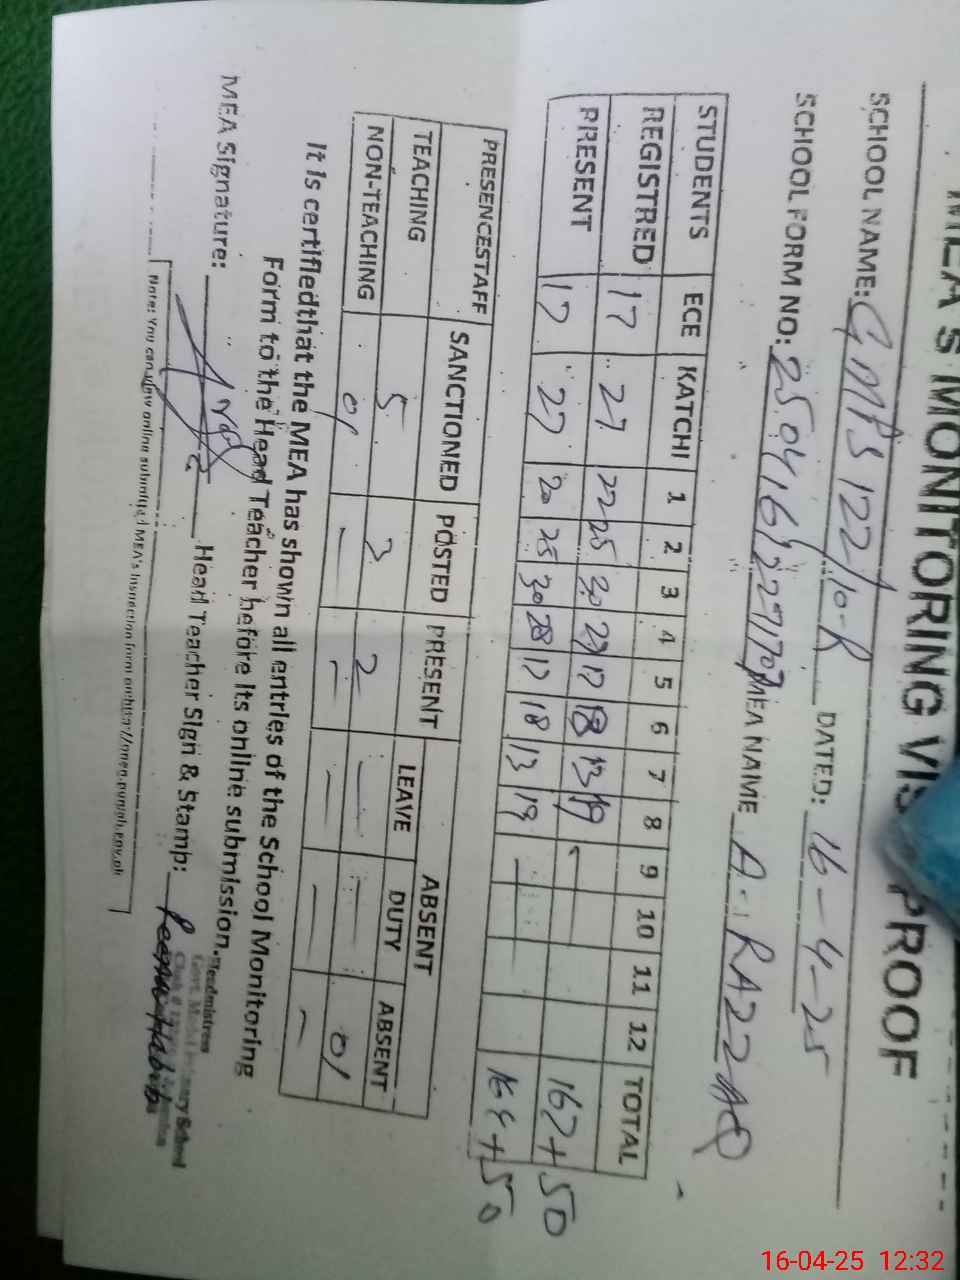 MEA'S MONITORING VIS PROOF
SCHOOL NAME: GMPS 122/10-R DATED: 16-4-25
SCHOOL FORM NO: MEA NAME A. RAZZAQ
STUDENTS ECE KATCHI 1 2 3 4 5 6 7 8 9 10 11 12 TOTAL
REGISTRED 17 27 22 25 30 17 18 13 19 162+50
PRESENT 17 27 20 25 30 28 17 18 13 19 +50
PRESENCESTAFF SANCTIONED POSTED PRESENT ABSENT
LEAVE DUTY ABSENT
TEACHING 5 3 2 — — 01
NON-TEACHING 01 — — — — —
It is certifiedthat the MEA has shown all entries of the School Monitoring
Form to the Head Teacher before its online submission.
MEA Signature: Head Teacher Sign & Stamp:
Headmistress
Note: You can view online submitted MEA's Inspection form at
16-04-25 12:32